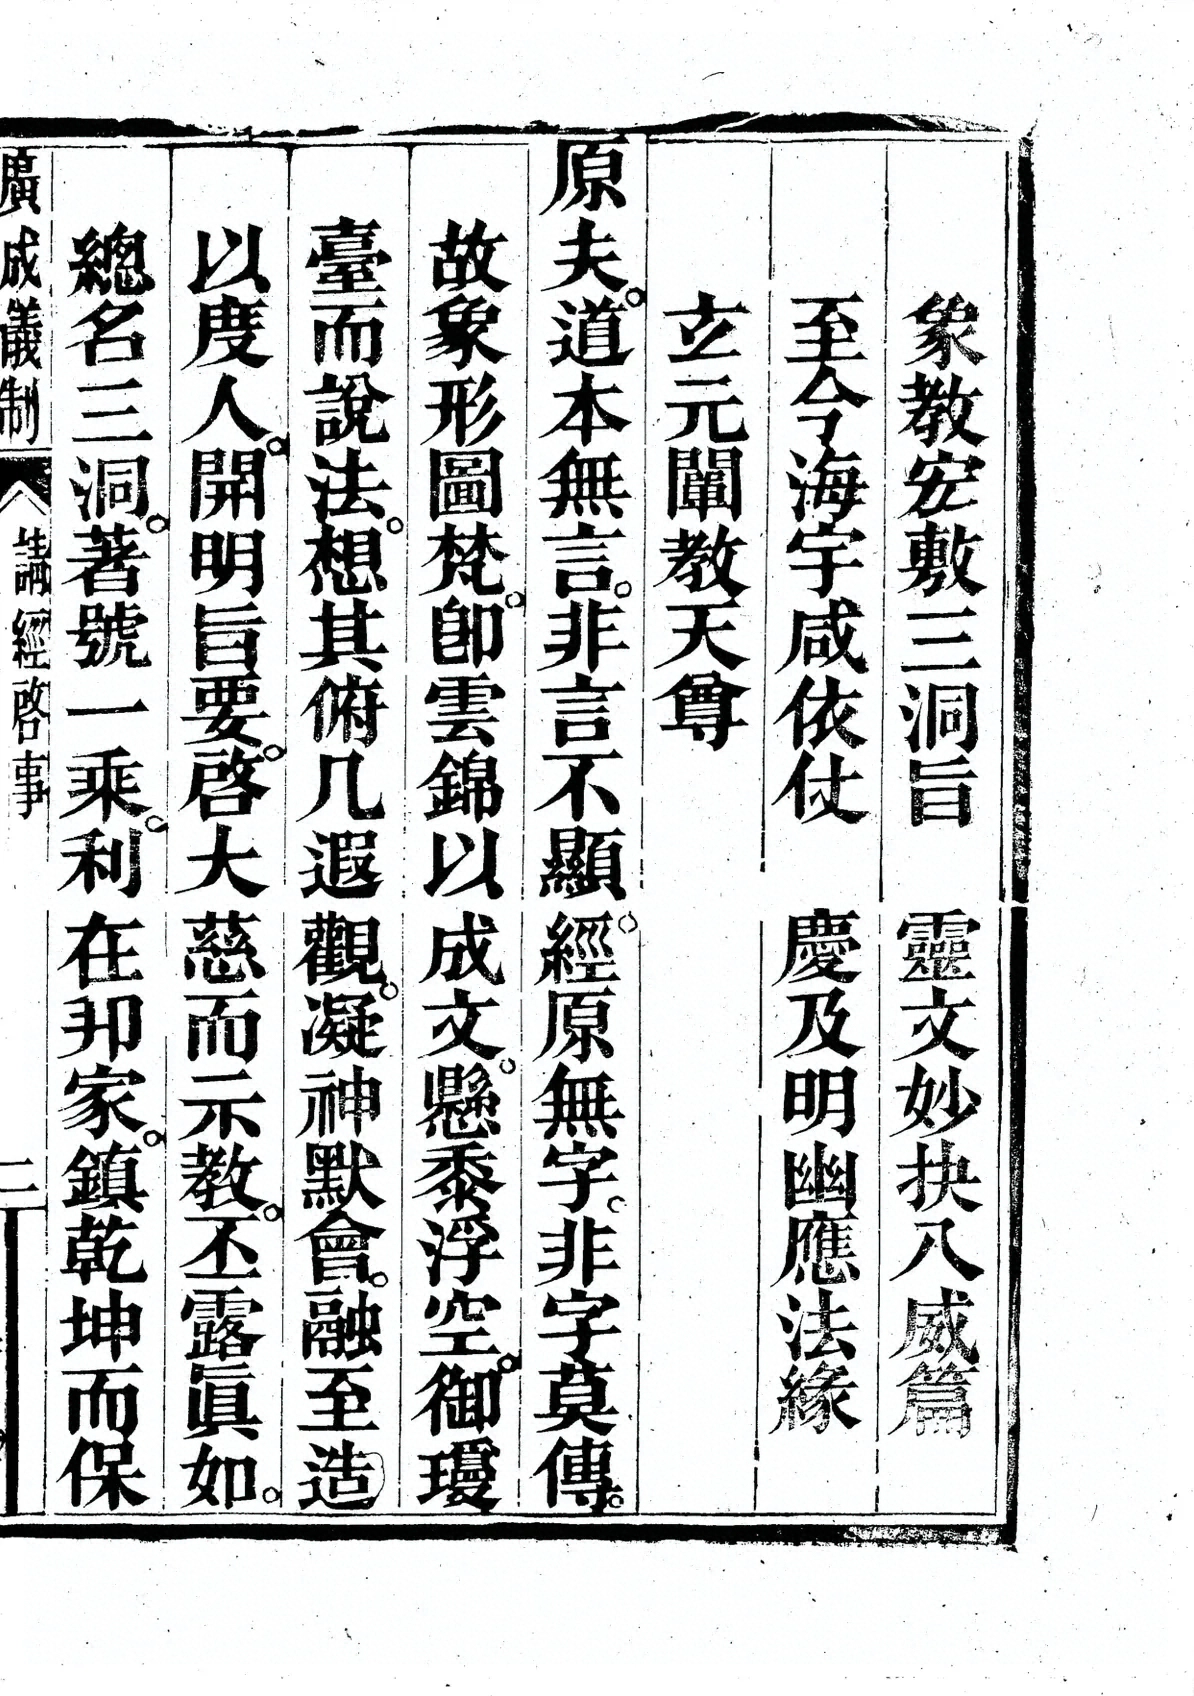 象教宏敷三洞旨　靈文妙抉八威篇
至今海宇咸依仗　慶及明幽應法緣
立元闡教天尊
原夫。道本無言。非言不顯。經原無字。非字莫傳。
故象形圖梵。卽雲錦以成文。懸黍浮空。御瓊
臺而說法。想其俯几遐觀。凝神默會。融至造
以度人。開明旨要。啓大慈而示教。丕露眞如。
總名三洞。著號一乘。利在邦家。鎮乾坤而保
廣成儀制　講經啓事　二